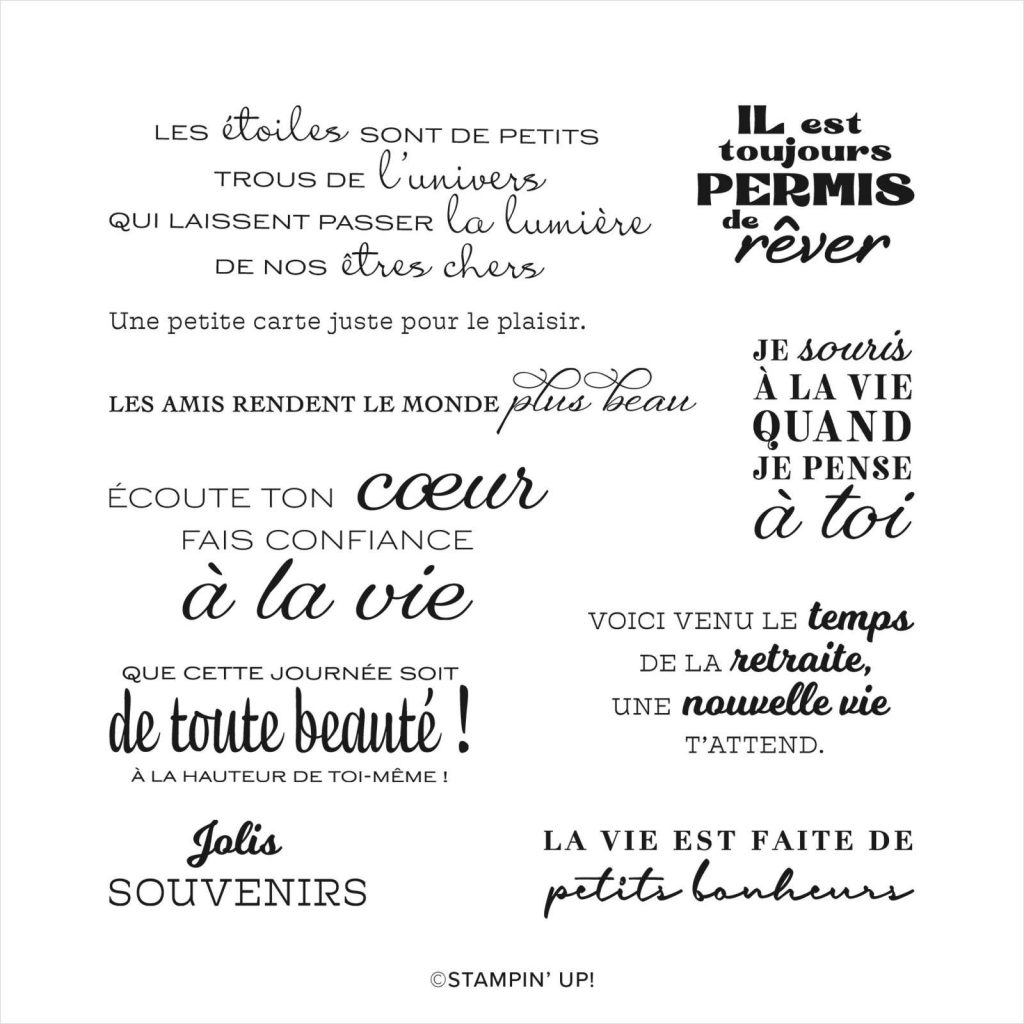 LES étoiles SONT DE PETITS
TROUS DE l'univers
QUI LAISSENT PASSER la lumière
DE NOS êtres chers
IL est
toujours
PERMIS
de
rêver
Une petite carte juste pour le plaisir.
JE souris
À LA VIE
QUAND
JE PENSE
à toi
LES AMIS RENDENT LE MONDE plus beau
ÉCOUTE TON cœur
FAIS CONFIANCE
à la vie
VOICI VENU LE temps
DE LA retraite,
UNE nouvelle vie
T'ATTEND.
QUE CETTE JOURNÉE SOIT
de toute beauté !
À LA HAUTEUR DE TOI-MÊME !
Jolis
SOUVENIRS
LA VIE EST FAITE DE
petits bonheurs
©STAMPIN' UP!